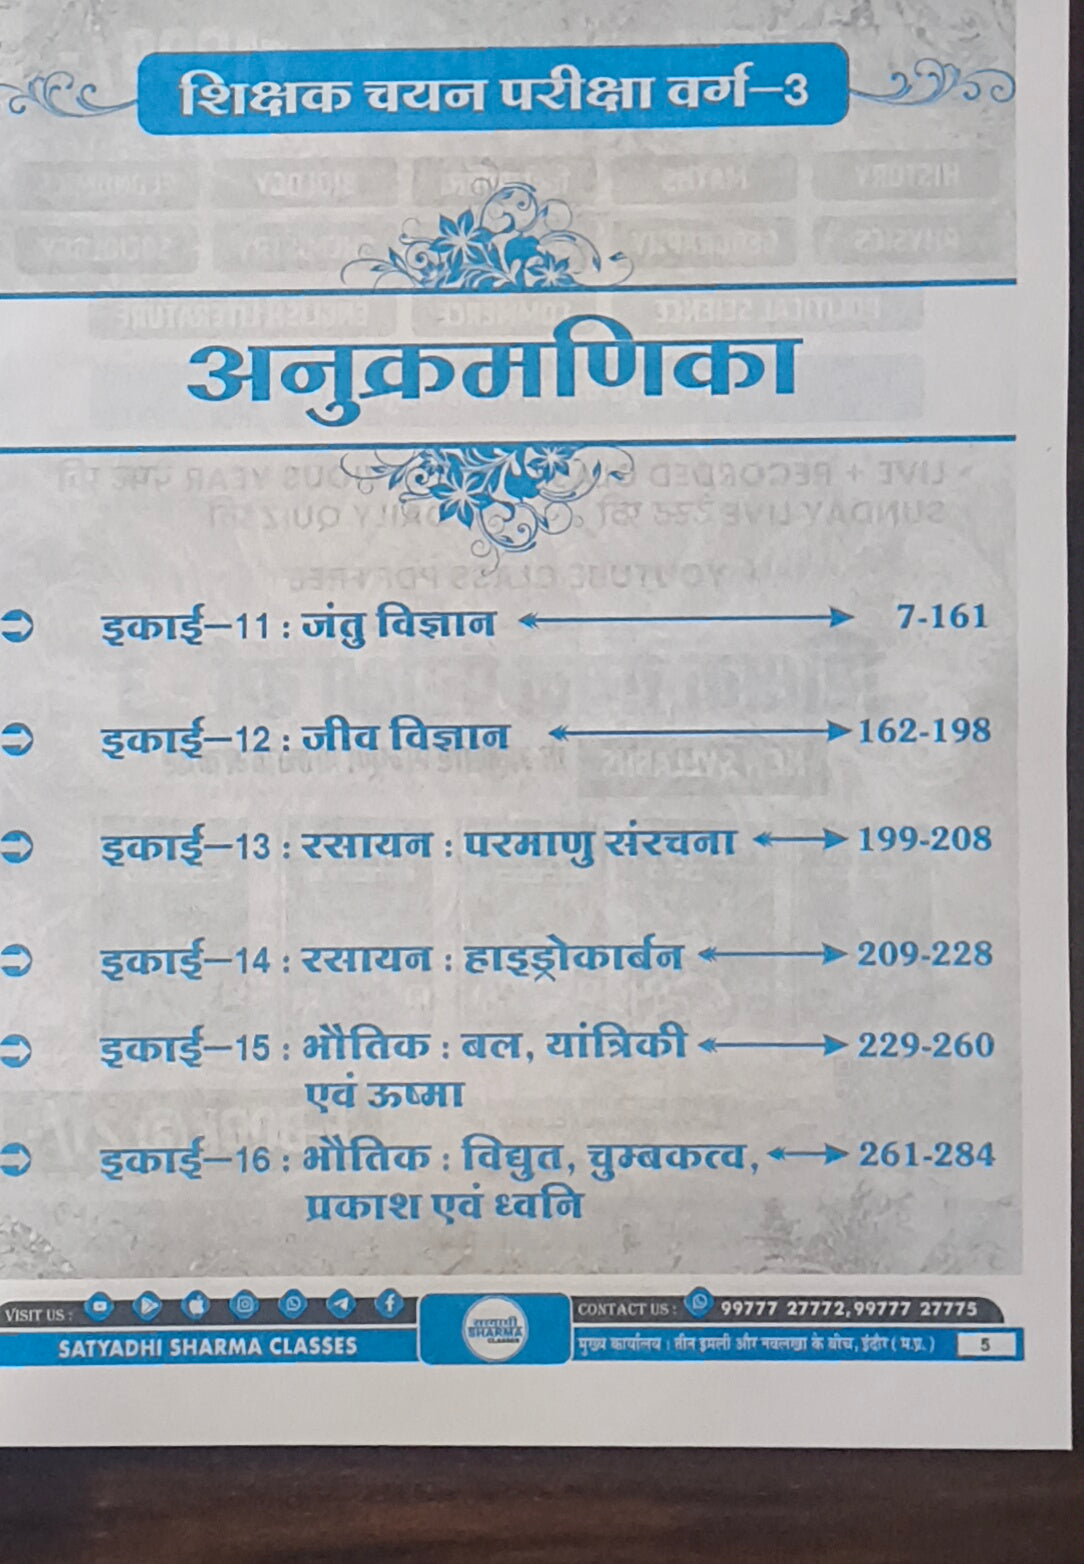 शिक्षक चयन परीक्षा वर्ग–3
अनुक्रमणिका
इकाई–11 : जंतु विज्ञान 7-161
इकाई–12 : जीव विज्ञान 162-198
इकाई–13 : रसायन : परमाणु संरचना 199-208
इकाई–14 : रसायन : हाइड्रोकार्बन 209-228
इकाई–15 : भौतिक : बल, यांत्रिकी 229-260
एवं ऊष्मा
इकाई–16 : भौतिक : विद्युत, चुम्बकत्व, 261-284
प्रकाश एवं ध्वनि
VISIT US :
SATYADHI SHARMA CLASSES
सत्याधी
SHARMA
CLASSES
CONTACT US : 99777 27772, 99777 27775
मुख्य कार्यालय : तीन इमली और नवलखा के बीच, इंदौर ( म.प्र. ) 5